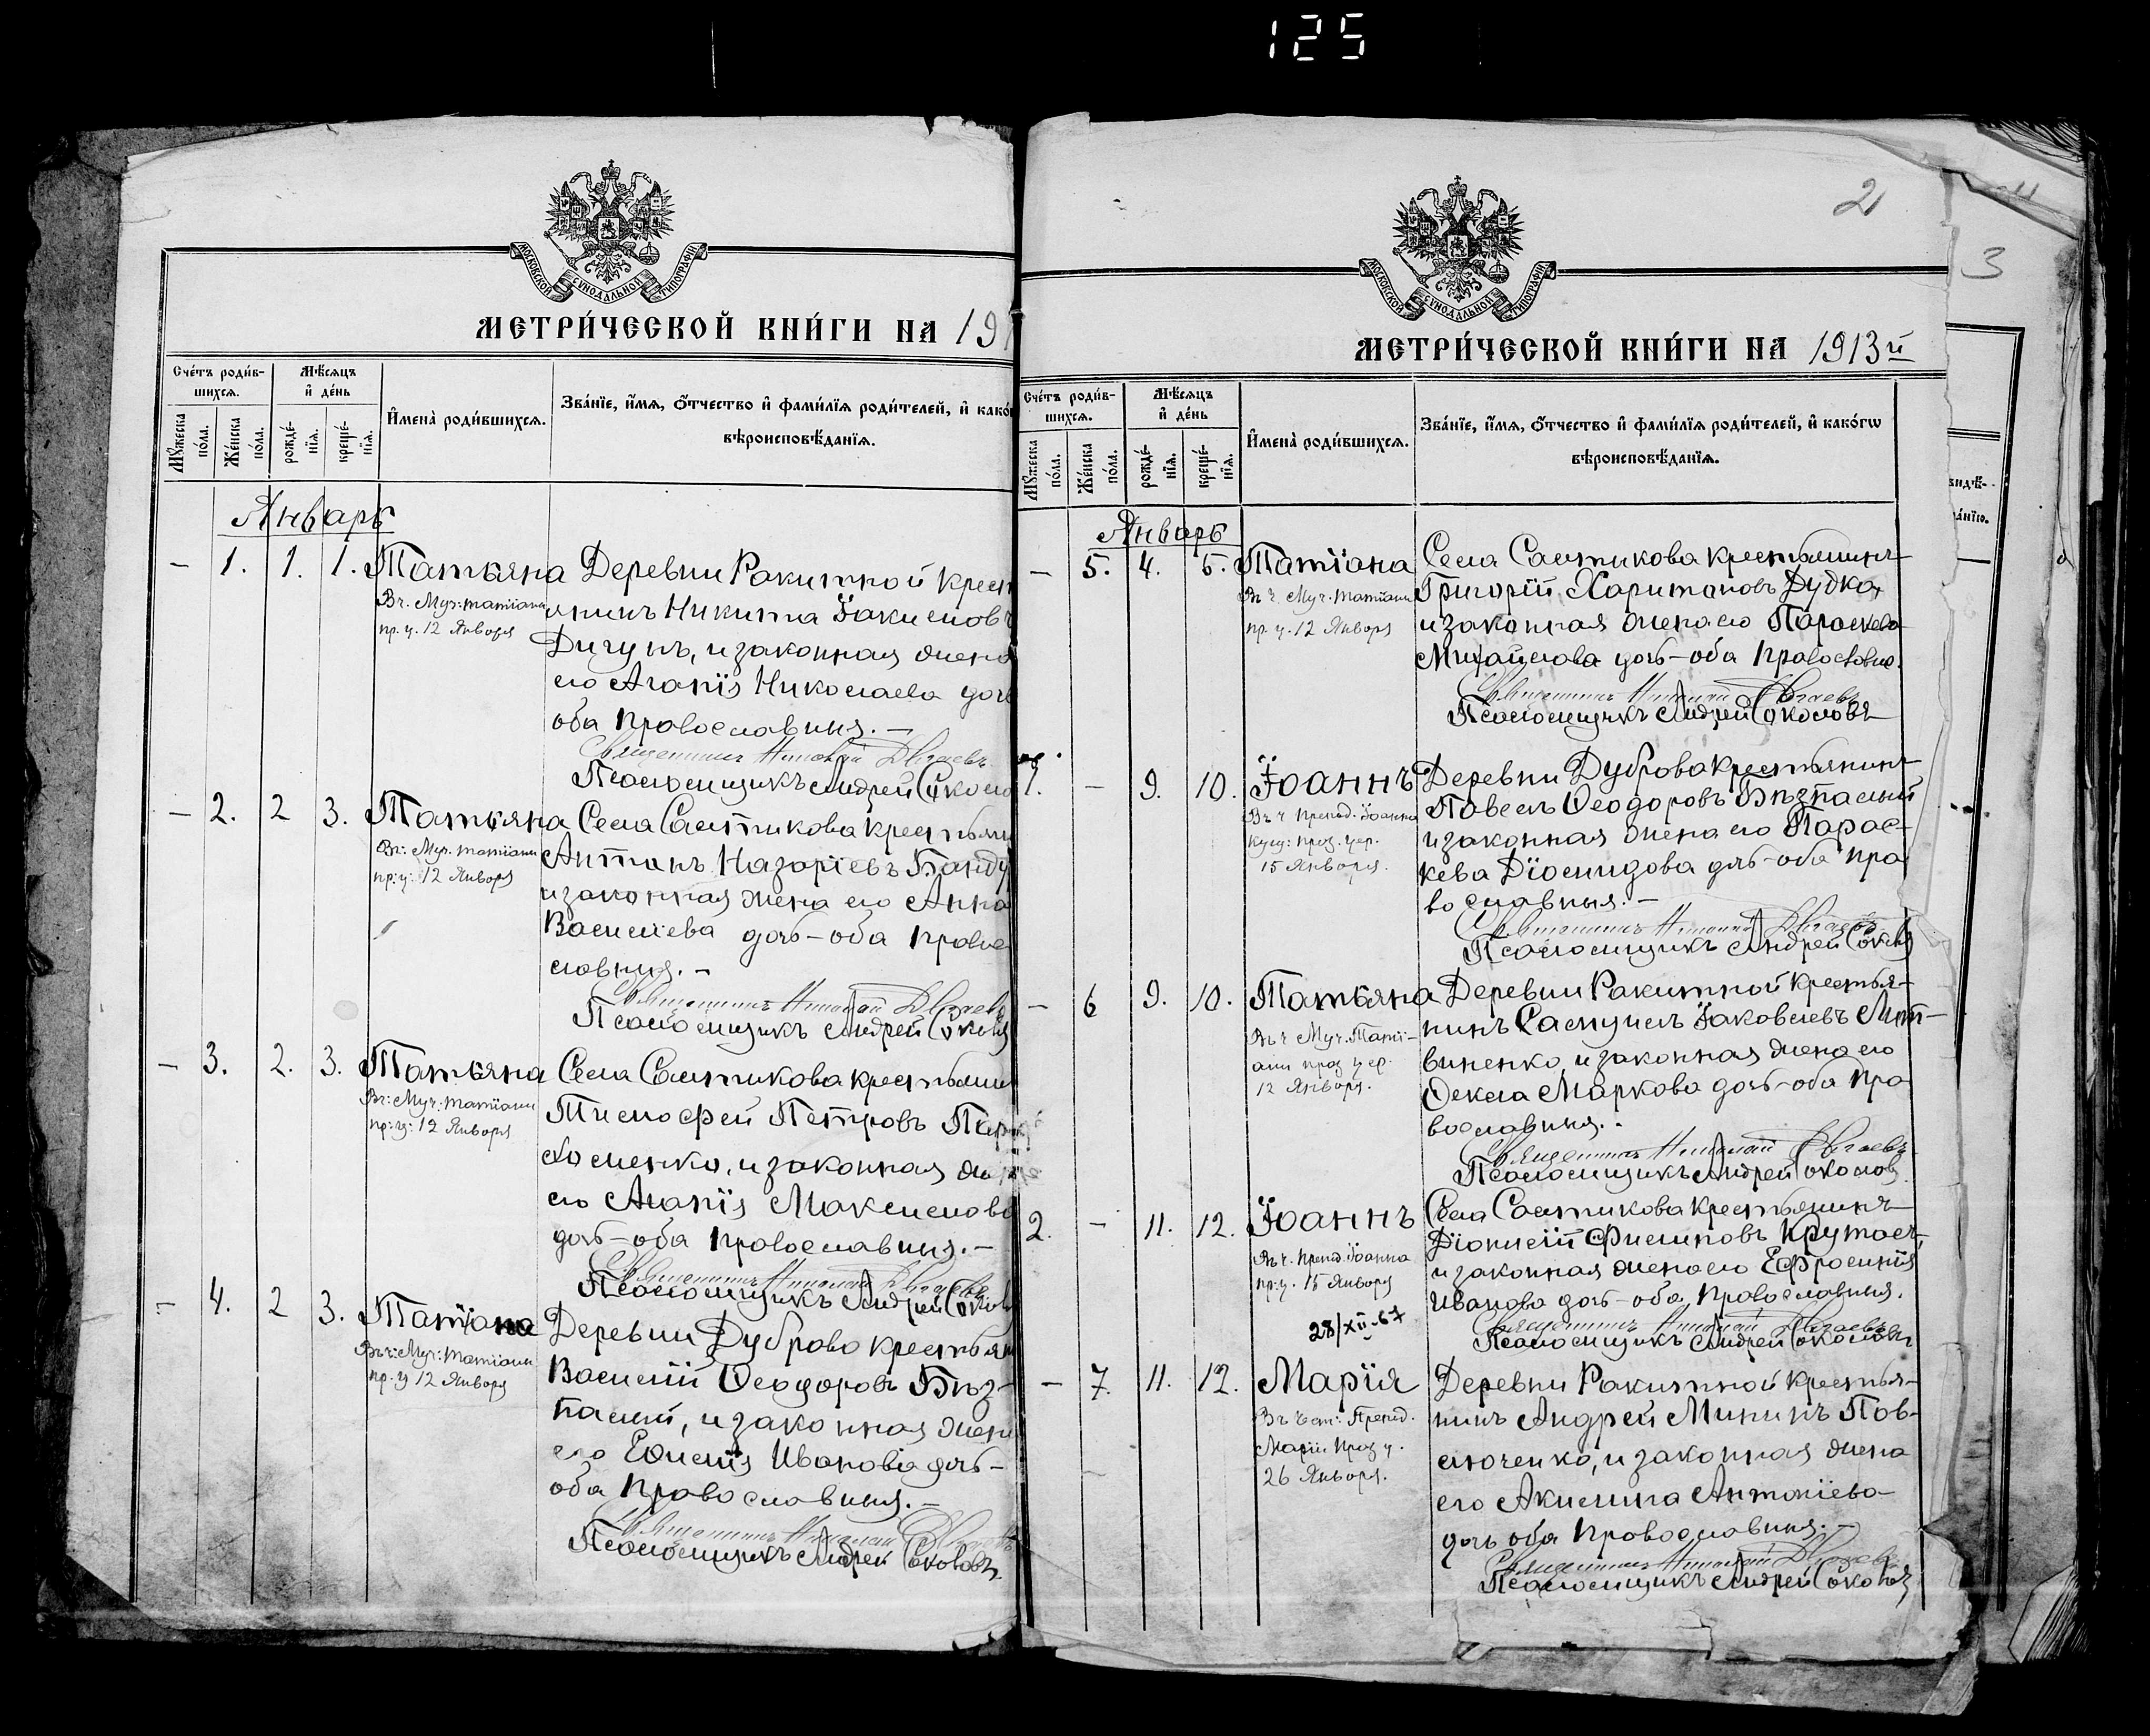 125
МОСКОВСКОЙ СѴНОДАЛЬНОЙ ТИПОГРАФІИ
МЕТРИ́ЧЕСКОЙ КНИ́ГИ НА 191
Сче́тъ роди́в-
шихсѧ.
Мѣ́сѧцъ
и҆ де́нь
Мꙋ́жеска
по́ла.
Же́нска
по́ла.
рожде́-
нїѧ.
креще́-
нїѧ.
И҆мена̀ роди́вшихсѧ.
Зва́нїе, и҆́мѧ, ѻ҆́тчество и҆ фами́лїѧ роди́телей, и҆ како́
вѣроисповѣ́данїѧ.
Январь
– 1. 1. 1. Татьяна
Въ ч. Муч: татіани
пр. ц. 12 Января
Деревни Ракитной крест
янинъ Никита Іакимовъ
Дигунъ, и законная жена
его Агапія Николаева дочь
оба православныя. –
Священникъ Николай
Псаломщикъ Андрей Соколо
– 2. 2 3. Татьяна
Въ: Муч. татіани
пр: ц: 12 Января
Села Салтикова крестьяни
Антонъ Назаріевъ Банду
и законная жена его Анна
Василіева дочь – оба право
славныя. –
Священникъ Николай
Псаломщикъ Андрей Соколов
– 3. 2. 3. Татьяна
Въ: Муч: татіани
пр: ц: 12 Января
Села Салтикова крестьянин
Тимофей Петровъ Пар
хоменко, и законная же
его Агапія Максимова
дочь – оба православныя. –
Священникъ Николай
Псаломщикъ Андрей Соколов
– 4. 2 3. Татіана
Въ ч: Муч: татіани
пр. ц 12 Января
Деревни Дуброва крестьян
Василій Ѳеодоровъ Бѣз-
палый, и законная жена
его Евфимія Иванова дочь –
оба православныя. –
Священникъ Николай
Псаломщикъ Андрей Соколовъ.
2
3
МОСКОВСКОЙ СѴНОДАЛЬНОЙ ТИПОГРАФІИ
МЕТРИ́ЧЕСКОЙ КНИ́ГИ НА 1913й
Сче́тъ роди́в-
шихсѧ.
Мѣ́сѧцъ
и҆ де́нь
Мꙋ́жеска
по́ла.
Же́нска
по́ла.
рожде́-
нїѧ.
креще́-
нїѧ.
И҆мена̀ роди́вшихсѧ.
Зва́нїе, и҆́мѧ, ѻ҆́тчество и҆ фами́лїѧ роди́телей, и҆ како́гѡ
вѣроисповѣ́данїѧ.
Январь
– 5. 4. 5. Татіана
Въ ч. Муч. татіани
пр. ц. 12 Января
Села Салтикова крестьянинъ
Григорій Харитоновъ Дудка,
и законная жена его Параскева
Михайлова дочь – оба православ.
Священникъ Николай
Псаломщикъ Андрей Соколовъ
1. – 9. 10. Іоаннъ
Въ ч препод. Іоанна
Кущ: праз. цер.
15 Января.
Деревни Дуброва крестьянинъ
Павелъ Ѳеодоровъ Бѣзпалый
и законная жена его Парас-
кева Діомидова дочь – оба пра
вославныя. –
Священникъ Николай
Псаломщикъ Андрей Соколов
– 6 9. 10. Татьяна
Въ ч Муч. Таті-
ани праз цер.
12 Января.
Деревни Ракитной крестья-
нинъ Самуилъ Іаковлевъ Лит-
виненко, и законная жена его
Ѳекла Маркова дочь – оба пра
вославныя. –
Священникъ Николай
Псаломщикъ Андрей Соколов
2. – 11. 12. Іоаннъ
Въ ч. препод. Іоанна
пр: ц. 15 Января
28/XII-67
Села Салтикова крестьянинъ
Діонисій Филиповъ Крутась,
и законная жена его Ефросинія
Иванова дочь – оба православныя.
Священникъ Николай
Псаломщикъ Андрей Соколовъ
– 7. 11. 12. Марія
Въ чест: Препод.
Маріи праз ц.
26 Января.
Деревни Ракитной крестья-
нинъ Андрей Мининъ Пав-
люченко, и законная жена
его Акилина Антоніева
дочь оба православныя. –
Священникъ Николай
Псаломщикъ Андрей Соколов